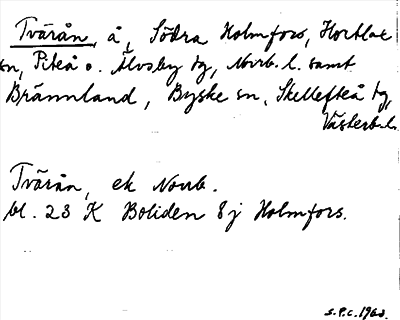 Tvärån, å, Södra Holmfors, Hortlax
sn, Piteå o. Älvsby tg, Norrb. l. samt
Brännland, Byske sn, Skellefteå tg,
Västerb. l.
Tvärån, ek Norrb.
bl. 23 K Boliden 8j Holmfors.
S.P.C. 1960.